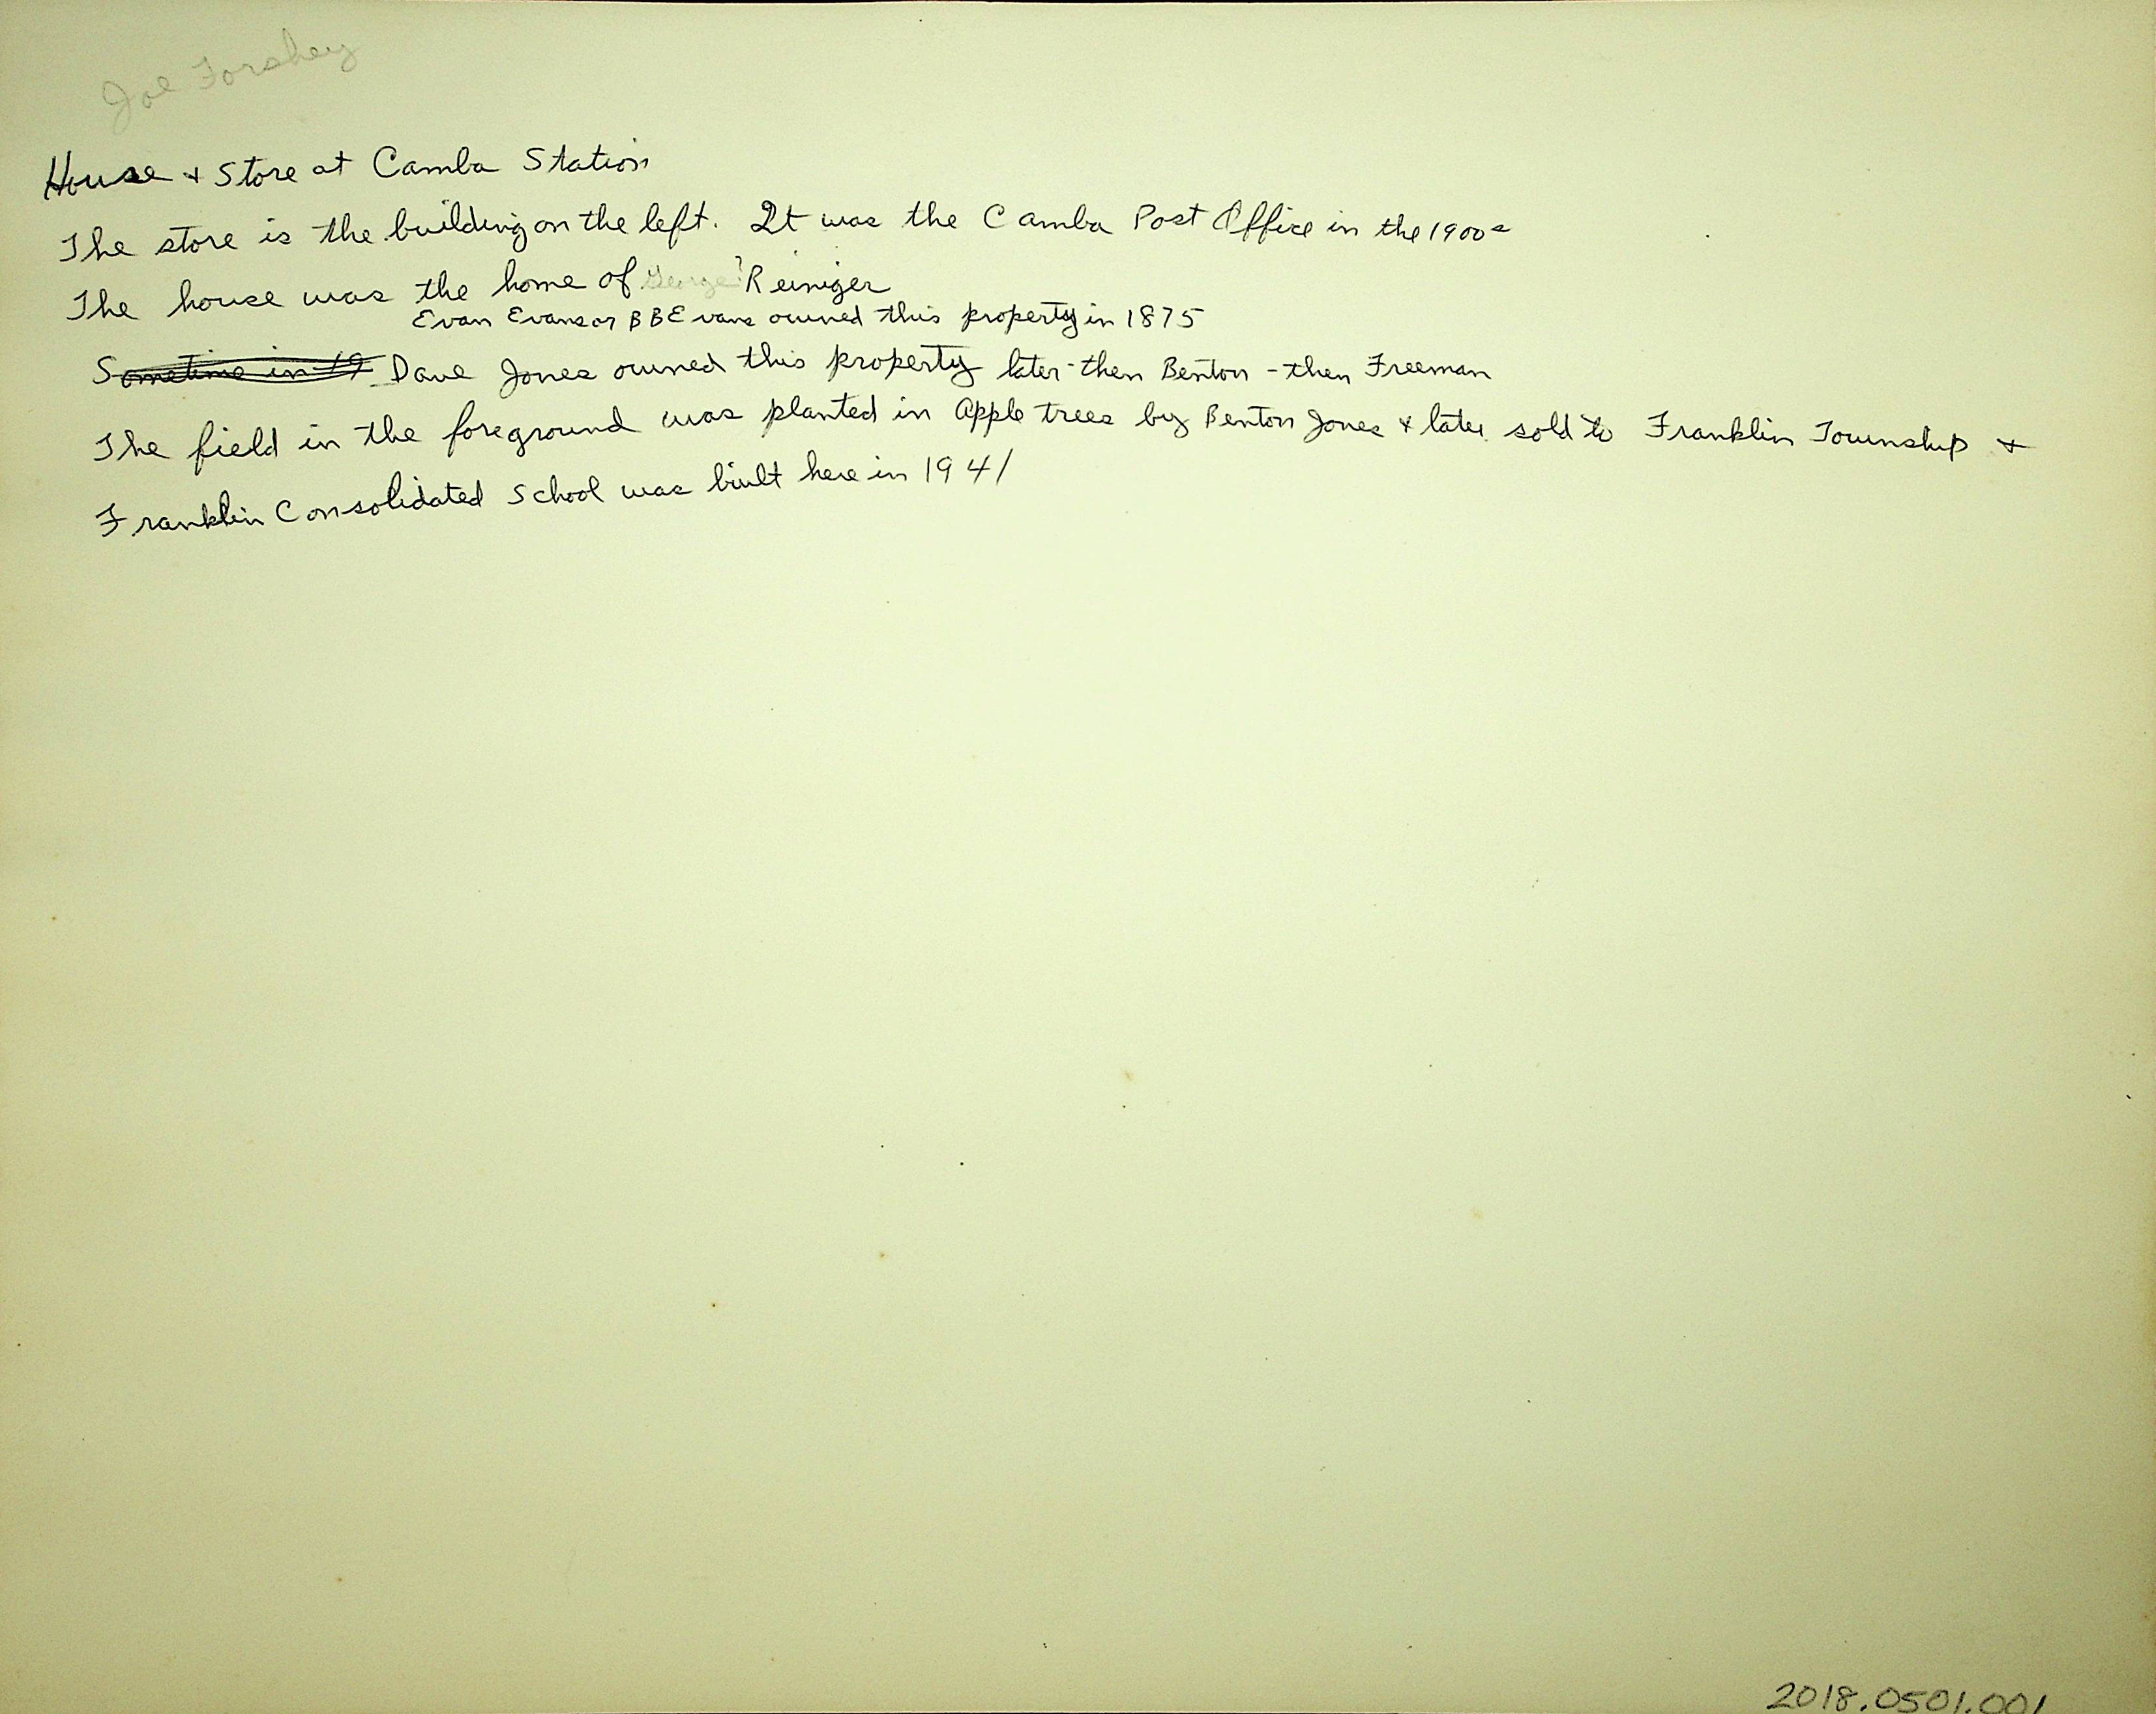 Joe Forshey
House & Store at Camba Station
The store is the building on the left. It was the Camba Post Office in the 1900s
The house was the home of George? Reiniger
Evan Evans or B B Evans owned this property in 1875
Sometime in 19 Dave Jones owned this property later - then Benton - then Freeman
The field in the foreground was planted in Apple trees by Benton Jones & later sold to Franklin Township &
Franklin Consolidated School was built here in 1941
2018.0501.001